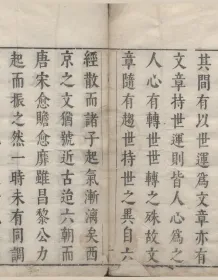 其間有以世運爲文章亦有
文章持世運則皆人心爲之
人心有轉世世轉之殊故文
章隨有趨世持世之異自六
經散而諸子起氣漸漓矣西
京之文猶號近古迨六朝而
唐宋愈贍愈靡雖昌黎公力
起而振之然一時未有同調